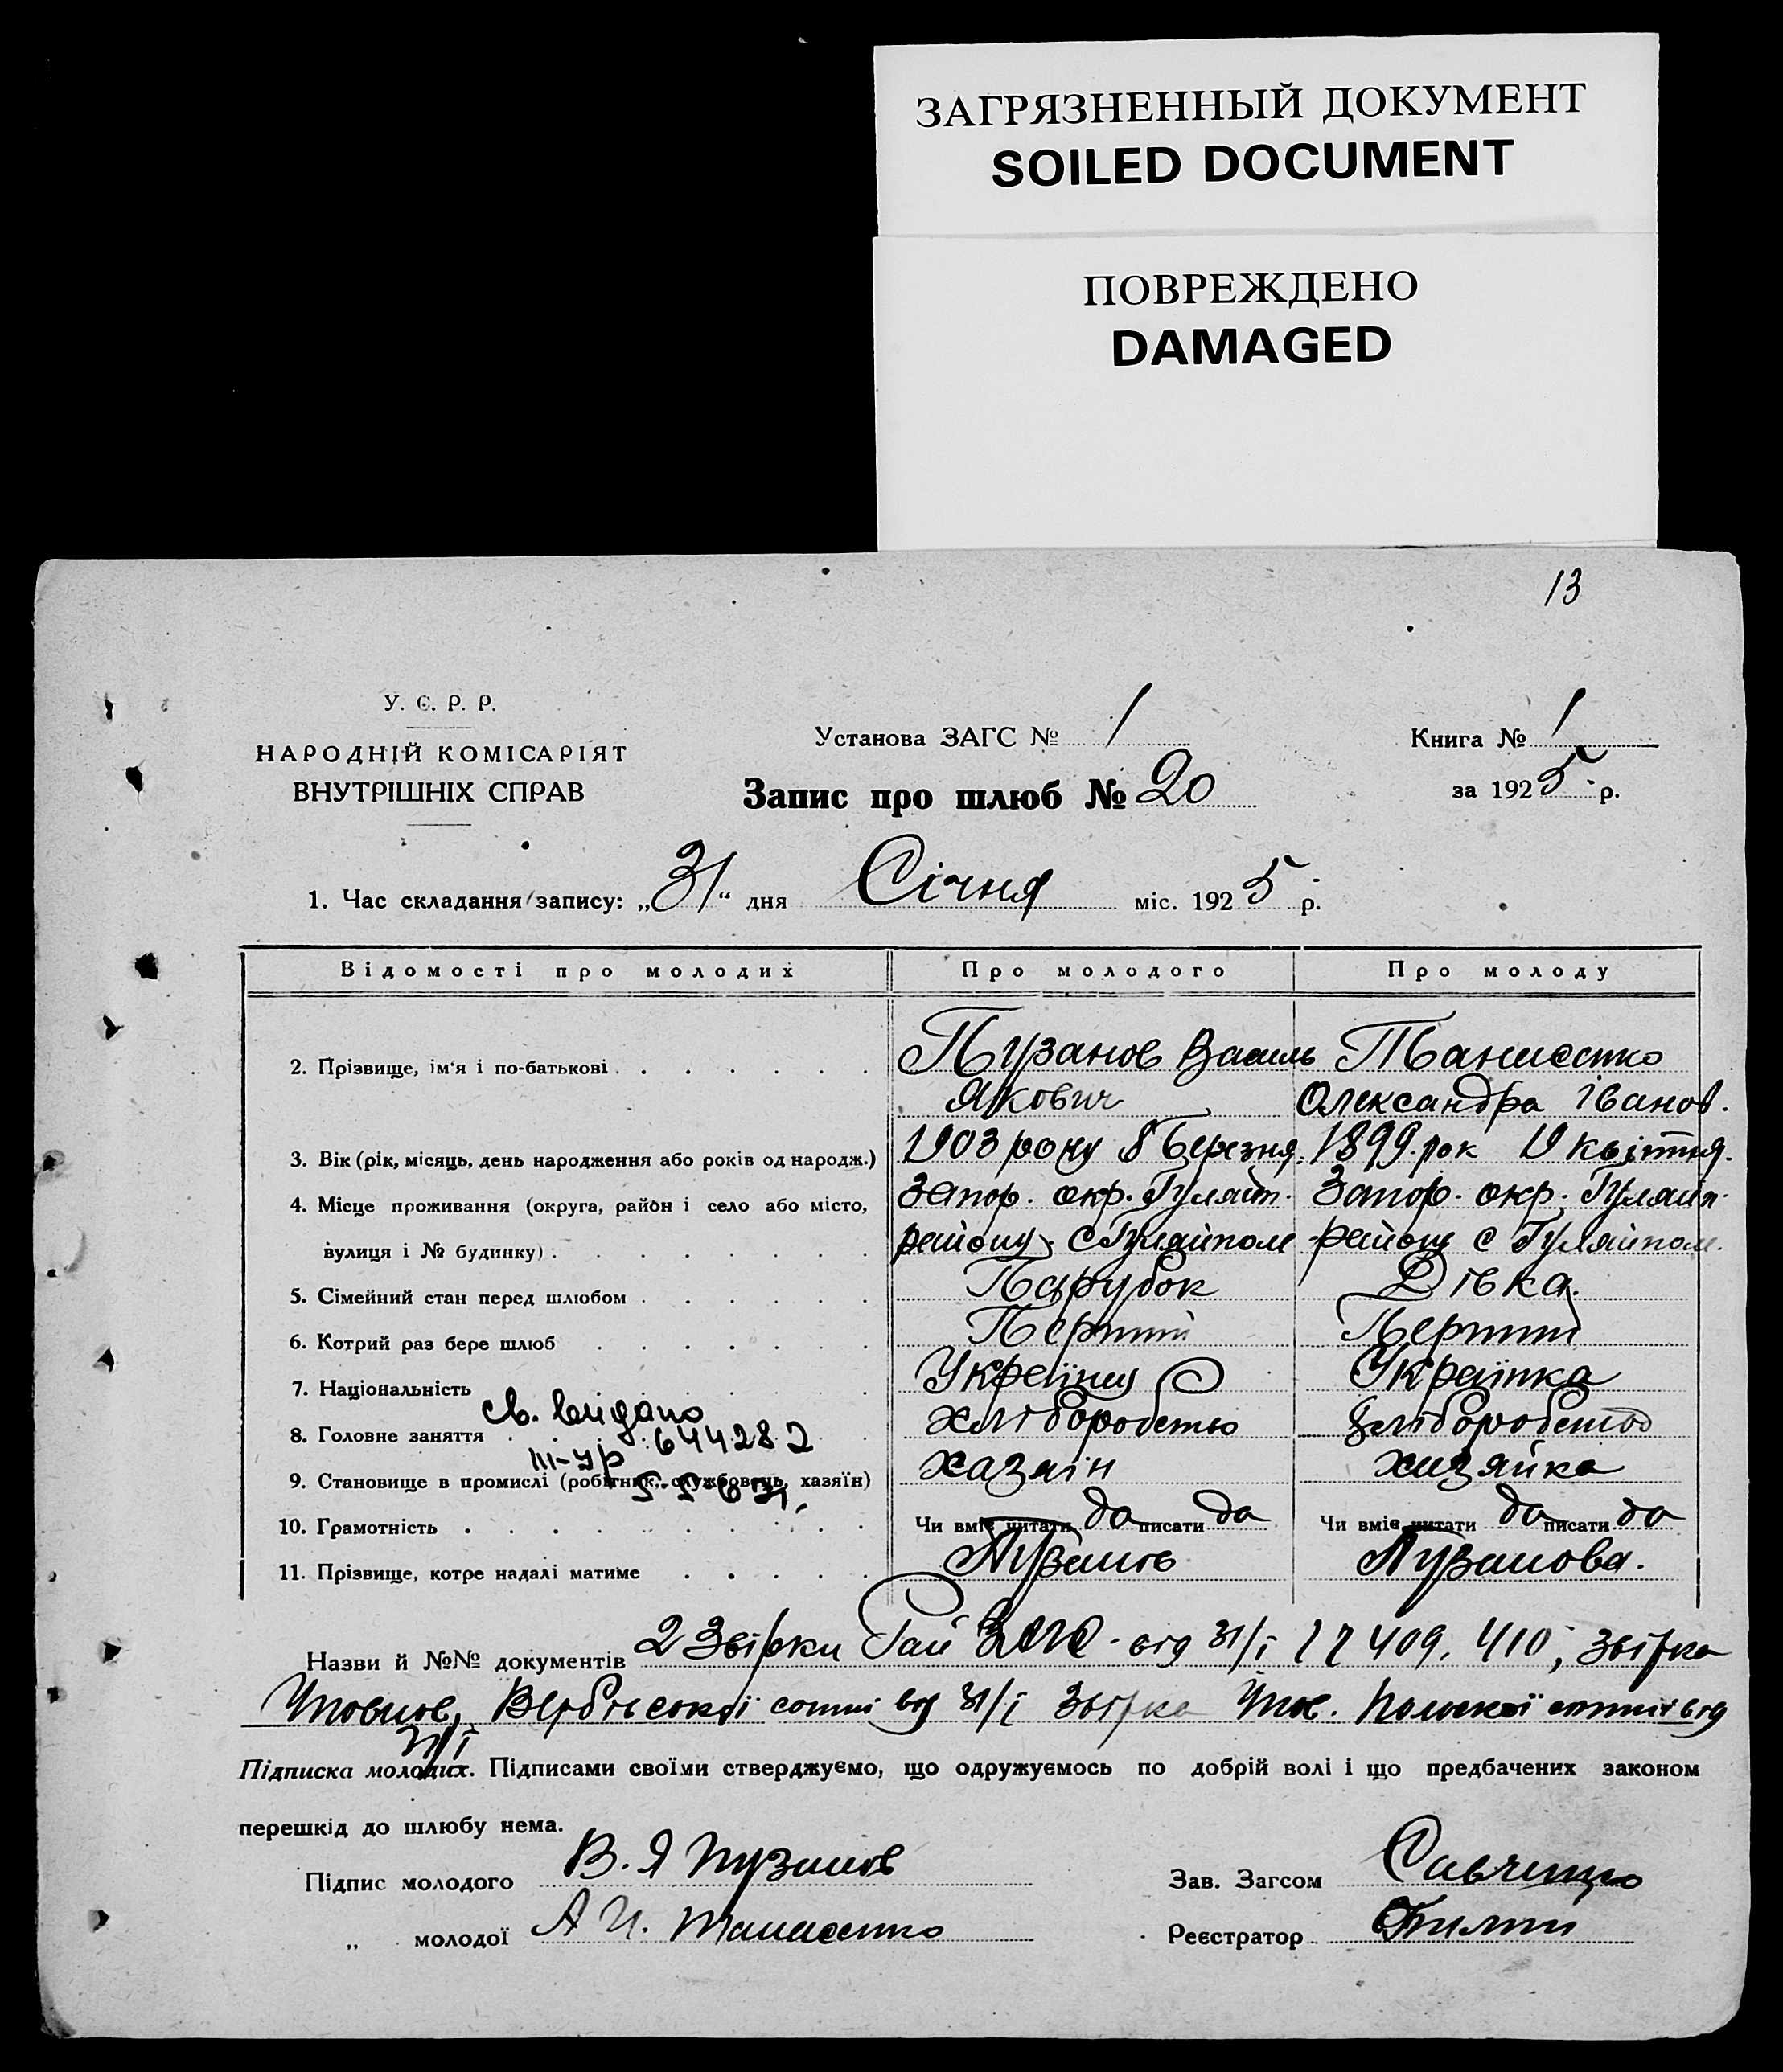 ЗАГРЯЗНЕННЫЙ ДОКУМЕНТ
SOILED DOCUMENT
ПОВРЕЖДЕНО
DAMAGED
13
У. С. Р. Р.
НАРОДНІЙ КОМІСАРІЯТ
ВНУТРІШНІХ СПРАВ
Установа ЗАГС № 1
Запис про шлюб № 20
Книга № 1
за 1925 р.
1. Час складання запису: „31“ дня Січня міс. 1925 р.
Відомості про молодих Про молодого Про молоду
2. Прізвище, ім'я і по-батькові Пузанов Василь
Якович Олександра Іванов.
3. Вік (рік, місяць, день народження або років од народж.) 1903 року 8 Березня. 1899 рок 19 квітня.
4. Місце проживання (округа, район і село або місто, Запор. окр. Гуляйп. Запор. окр. Гуляйп.
вулиця і № будинку) району с Гуляйполе району с Гуляйполе.
5. Сімейний стан перед шлюбом Парубок Дівка.
6. Котрий раз бере шлюб Перший Перший
7. Національність Українец Українка
св. видано
8. Головне заняття Хліборобство Хліборобство
III-УР 644282
9. Становище в промислі (робітник, службовець, хазяїн) хазяін хазяйка
10. Грамотність Чи вміє читати да писати да Чи вміє читати да писати да
11. Прізвище, котре надалі матиме Пузанов Пузанова.
Назви й №№ документів 2 Звірки Рай ЗАГС від 31/I 409, 410, звірка
сотні від 31/I Звірка сотні від
31/I
Підписка молодих. Підписами своїми стверджуємо, що одружуємось по добрій волі і що предбачених законом
перешкід до шлюбу нема.
Підпис молодого В. Я Пузанов
Зав. Загсом Савченко
„ молодої А И.
Реєстратор